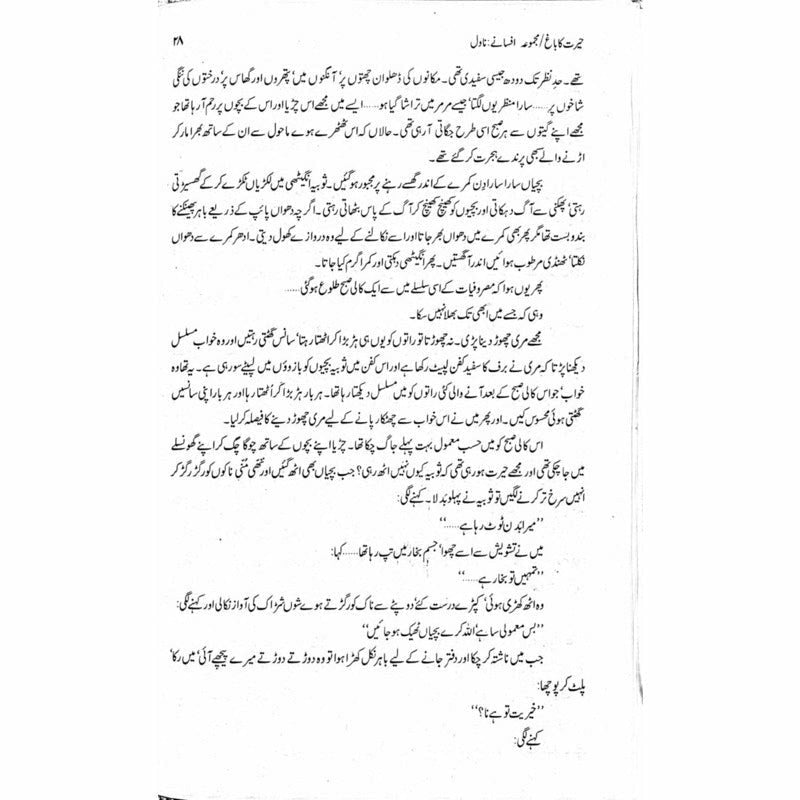 حیرت کا باغ/مجموعہ افسانے: ناول ۲۸
تھے۔ حدِ نظر تک دودھ جیسی سفیدی تھی۔ مکانوں کی ڈھلوان چھتوں پر' آنگنوں میں' پتھروں اور گھاس پر' درختوں کی ننگی
شاخوں پر...... سارا منظر یوں لگتا' جیسے مرمر میں تراشا گیا ہو...... ایسے میں مجھے اس چڑیا اور اس کے بچوں پر رحم آ رہا تھا جو
مجھے اپنے گیتوں سے ہر صبح اسی طرح جگاتی آ رہی تھی۔ حالاں کہ اس ٹھٹھرے ہوے ماحول سے ان کے ساتھ بھرا مار کر
اڑنے والے سبھی پرندے ہجرت کر گئے تھے۔
بچیاں سارا سارا دن کمرے کے اندر گھسے رہنے پر مجبور ہو گئیں۔ ثوبیہ انگیٹھی میں لکڑیاں ٹکڑے کر کے گھسیڑتی
رہتی' پھکنی سے آگ دہکاتی اور بچیوں کو کھینچ کھینچ کر آگ کے پاس بٹھاتی رہتی۔ اگرچہ دھواں پائپ کے ذریعے باہر پھینکنے کا
بندوبست تھا مگر پھر بھی کمرے میں دھواں بھر جاتا اور اسے نکالنے کے لیے وہ دروازے کھول دیتی۔ ادھر کمرے سے دھواں
نکلتا' ٹھنڈی مرطوب ہوائیں اندر آ گھستیں۔ پھر انگیٹھی دہکتی اور کمرا گرم کیا جاتا۔
پھر یوں ہوا کہ مصروفیات کے اسی سلسلے میں سے ایک کالی صبح طلوع ہو گئی......
وہی کہ جسے میں ابھی تک بھلا نہیں سکا۔
مجھے مری چھوڑ دینا پڑی۔ نہ چھوڑتا تو راتوں کو یوں ہی ہڑبڑا کر اٹھتا رہتا' سانس گھٹتی رہتیں اور وہ خواب مسلسل
دیکھنا پڑتا کہ مری نے برف کا سفید کفن لپیٹ رکھا ہے اور اس کفن میں ثوبیہ بچیوں کو بازوؤں میں لپیٹے سو رہی ہے۔ یہ تھا وہ
خواب' جو اس کالی صبح کے بعد آنے والی کئی راتوں کو میں مسلسل دیکھتا رہا تھا۔ ہر بار ہڑبڑا کر اُٹھتا رہا اور ہر بار اپنی سانسیں
گھٹتی ہوئی محسوس کیں۔ اور پھر میں نے اس خواب سے چھٹکارا پانے کے لیے مری چھوڑ دینے کا فیصلہ کر لیا۔
اس کالی صبح کو میں حسب معمول بہت پہلے جاگ چکا تھا۔ چڑیا اپنے بچوں کے ساتھ چوگا چگ کر اپنے گھونسلے
میں جا چکی تھی اور مجھے حیرت ہو رہی تھی کہ ثوبیہ کیوں نہیں اٹھ رہی؟ جب بچیاں بھی اٹھ گئیں اور ننھی مُنّی ناکوں کو رگڑ رگڑ کر
انہیں سرخ تر کرنے لگیں تو ثوبیہ نے پہلو بدلا۔ کہنے لگی:
''میرا بدن ٹوٹ رہا ہے......''
میں نے تشویش سے اسے چھوا' جسم بخار میں تپ رہا تھا...... کہا:
''تمہیں تو بخار ہے......''
وہ اٹھ کھڑی ہوئی' کپڑے درست کئے' دوپٹے سے ناک کو رگڑتے ہوے شوں شڑاک کی آواز نکالی اور کہنے لگی:
''بس معمولی سا ہے' اللہ کرے بچیاں ٹھیک ہو جائیں''
جب میں ناشتہ کر چکا اور دفتر جانے کے لیے باہر نکل کھڑا ہوا تو وہ دوڑتے دوڑتے میرے پیچھے آئی' میں رکا'
پلٹ کر پوچھا:
''خیریت تو ہے نا؟''
کہنے لگی: